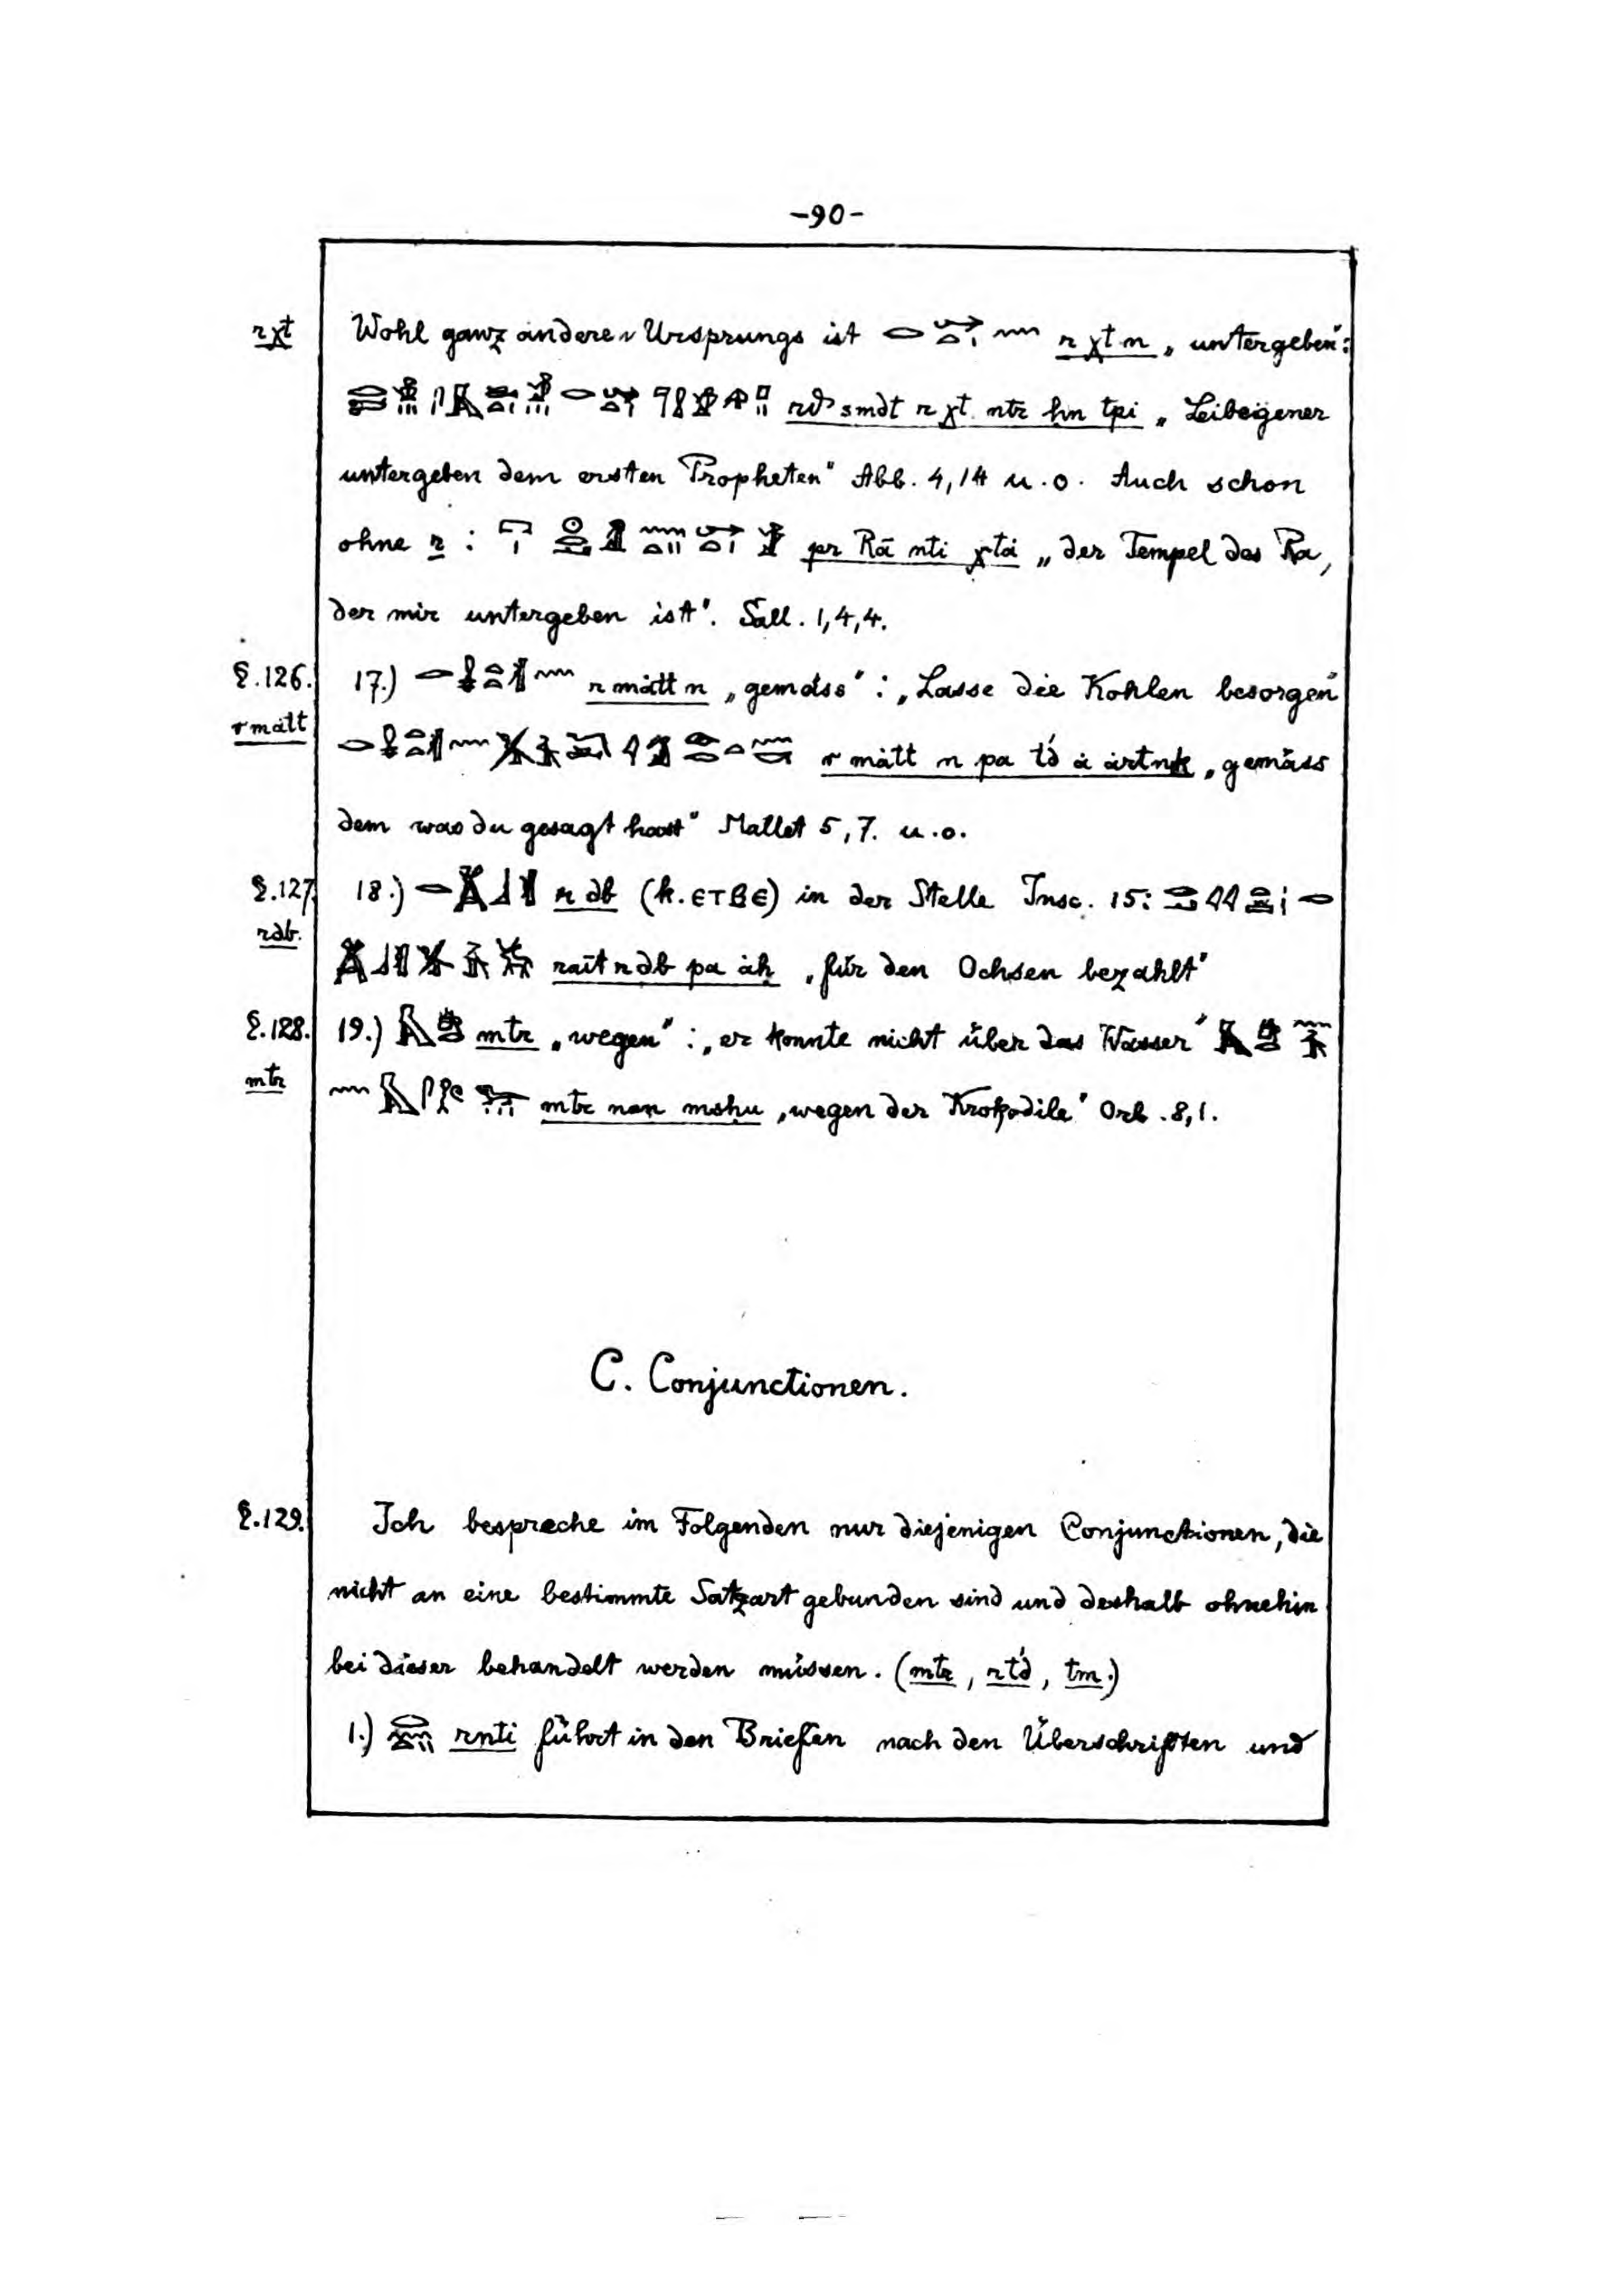 -90-
rχt Wohl ganz anderen Ursprungs ist r χt n „untergeben":
smdt r χt ntr ḥn tpi „Leibeigener
untergeben dem ersten Propheten" Abb. 4,14 u.o. Auch schon
ohne r : pr Rā nti χtȧ „der Tempel des Ra,
der mir untergeben ist". Sall. 1,4,4.
§.126. 17.) r mȧtt n „gemäss" : „Lasse die Kohlen besorgen"
r mȧtt r mȧtt n pa ȧ ȧrtnk „gemäss
dem was du gesagt hast" Mallet 5,7. u.o.
§.127. 18.) r db (k. ⲉⲧⲃⲉ) in der Stelle Insc. 15:
rdb. r db pa ȧḥ „für den Ochsen bezahlt"
§.128. 19.) mtr „wegen" : „er konnte nicht über das Wasser"
mtr mtr nan mshu „wegen der Krokodile" Orb. 8,1.
C. Conjunctionen.
§.129. Ich bespreche im Folgenden nur diejenigen Conjunctionen, die
nicht an eine bestimmte Satzart gebunden sind und deshalb ohnehin
bei dieser behandelt werden müssen. (mtr, , tm.)
1.) rnti führt in den Briefen nach den Überschriften und